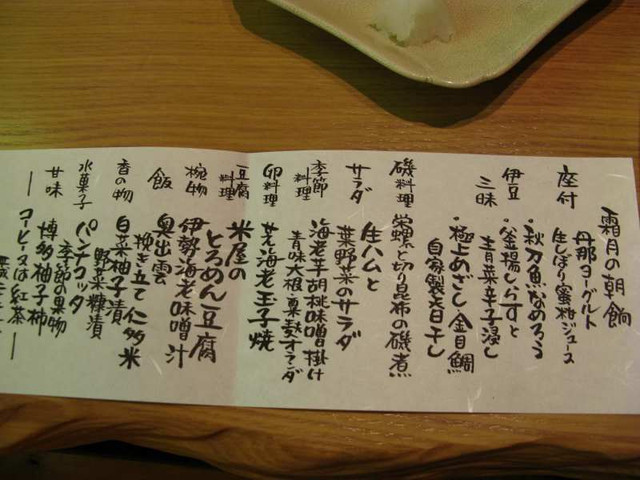 霜月の朝餉
座付
丹那ヨーグルト
生しぼり蜜柑ジュース
伊豆
三昧
・秋刀魚なめろう
・釜揚しらすと
青菜辛子浸し
・極上めざし金目鯛
自家製
干し
磯料理
栄螺と切り昆布の磯煮
サラダ
生ハムと
葉野菜のサラダ
季節
料理
海老芋胡桃味噌掛け
青味大根
粟麩オランダ
卵料理
芝海老玉子焼
豆腐
料理
米屋の
とろめん豆腐
椀物
伊勢海老味噌汁
飯
奥出雲
挽き立て仁多米
香の物
白菜柚子漬
野菜糠漬
水菓子
パンナコッタ
季節の果物
甘味
博多柚子柿
ー コーヒー又は紅茶 ー
平成二